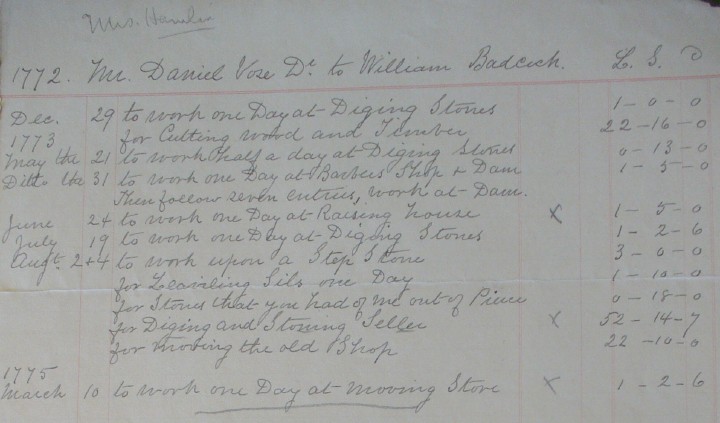 Mrs. Hamlin
1772. Mr. Daniel Voze Dr. to William Badcock. L. S. D
Dec. 29 to work one Day at Diging Stones 1-0-0
1773 for Cutting wood and Timber 22-16-0
May the 21 to work half a day at Diging Stones 0-13-0
Ditto the 31 to work one Day at Barbers Shop & Dam 1-5-0
Then follow seven entries, work at Dam.
June 24 to work one Day at Raising house x 1-5-0
July 19 to work one Day at Diging Stones 1-2-6
Augt. 2+4 to work upon a Step Stone 3-0-0
for Leaviling Sils one Day 1-10-0
for Stones that you had of me out of Piece 0-18-0
for Diging and Stoning Seller x 52-14-7
for moving the old Shop 22-10-0
1775
March 10 to work one Day at moving Store x 1-2-6